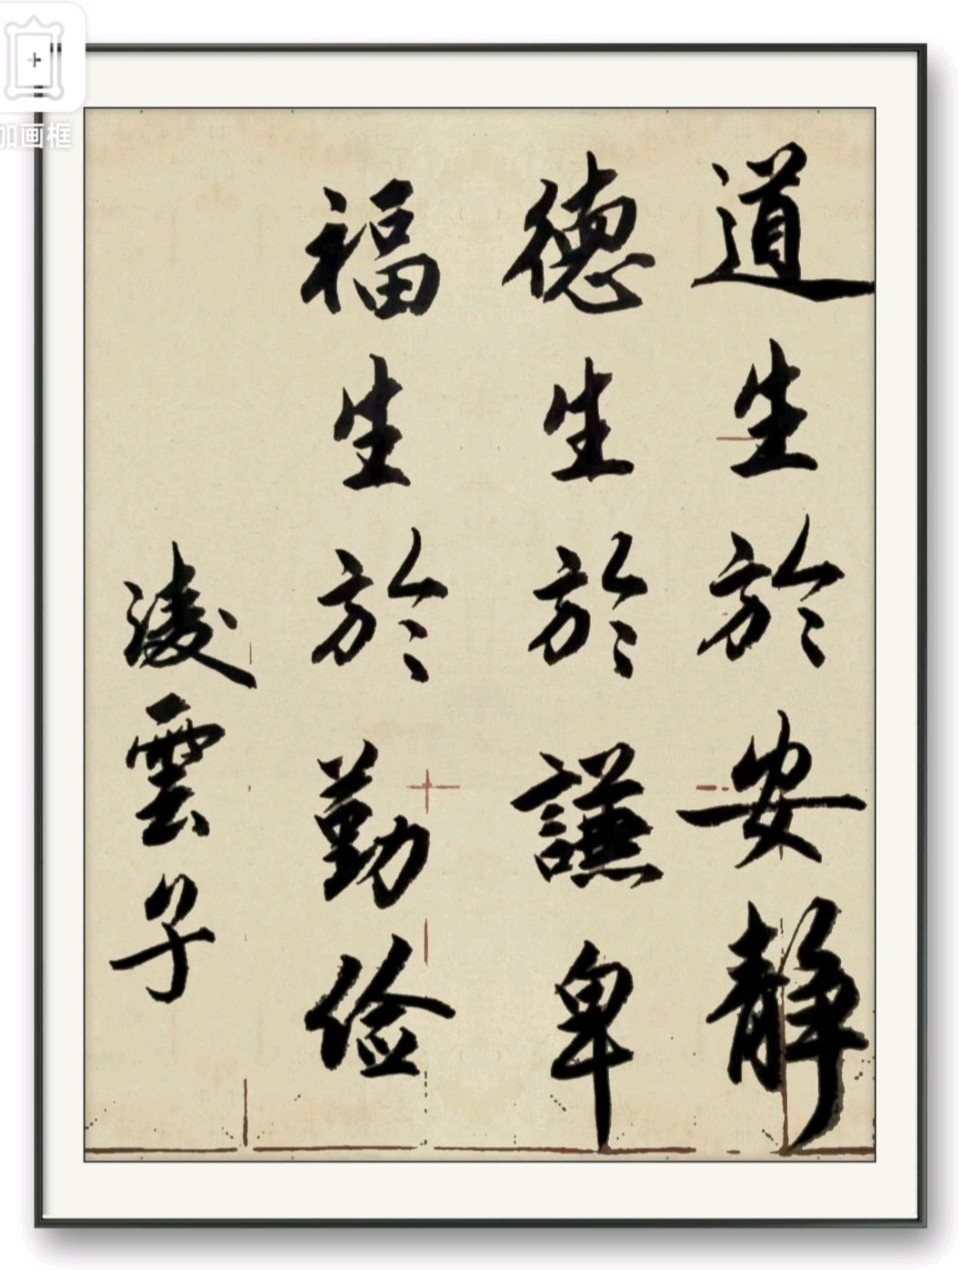 道生於安靜
德生於謙卑
福生於勤俭
淩雲子
加画框